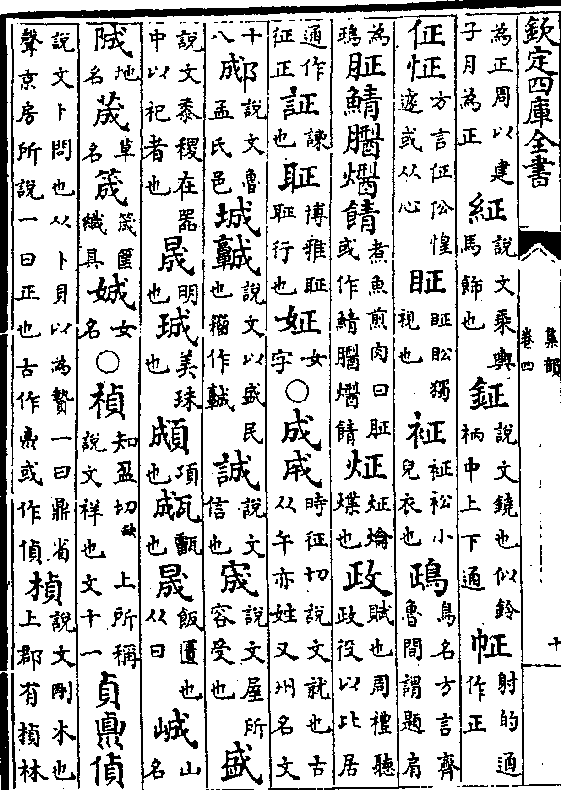 欽定四庫全書
集韻
卷四
十
為正周以建
子月為正
紝說文乘輿
馬飾也
鉦說文鐃也似鈴
柄中上下通
㡧射的通
作正
佂怔方言佂伀惶
遽或从心
眐眐㕬獨
視也
䘣䘣衳小
兒衣也
鴊鳥名方言齊
魯間謂題肩
為
鴊
䏠鯖䐖煼䭊煮魚煎肉曰䏠
或作鯖
炡炡爚
煠也
政賦也周禮聽
政役以比居
通作
征正
証諫
也
聇博雅聇
聇行也
姃女
字
○成戚時征切說文就也古
从午亦姓又州名文
十
八
郕說文魯
孟氏邑
城𩫨說文以盛民
也籀作𩫨
誠說文
信也
宬說文屋所
容受也
盛
說文黍稷在器
中以祀者也
晟明
也
珹美珠
也
䫆項
也
㼩瓦甑
也
晟飯匱也
从曰
峸山
名
㘹地
名
荿草
名
筬筬筐
織具
娍女
名
○禎知盈切
說文祥也文十一
上所稱
貞鼑偵
說文卜問也从卜貝以為贄一曰鼎省
聲京房所說一曰正也古作鼑或作偵
楨說文剛木也
上郡有楨林